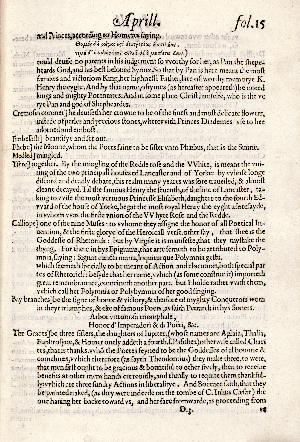 Aprill. fol.15
and Princes, according to Homeres saying.
could devise no parents in his judgement so worthy for her, as Pan the shepe-
heards God, and his best beloved Syrinx. So that by Pan is here meant the most
famous and victorious King, her highnesse Father, late of worthy memorye K.
Henry the eyght. And by that name, oftymes (as hereafter appeareth) be noted
kings and mighty Potentates: And in some place Christ himselfe, who is the ve-
rye Pan and god of Shepheardes.
Cremosin coronet) he deviseth her crowne to be of the finest and most delicate flowers,
instede of perles and precious stones, wherewith Princes Diademes use to bee
adorned and embost.
Embellish) beautifye and set out.
Phebe) the Moone, whom the Poets faine to be sister unto Phæbus, that is the Sunne.
Medled) mingled.
Yfere) together. By the mingling of the Redde rose and the VVhite, is meant the uni-
ting of the two principall houses of Lancaster and of Yorke: by vvhose longe
discord and deadly debate, this realm many yeares was sore traveiled, & almost
cleane decayed. Til the famous Henry the seventh, of the line of Lancaster, ta-
king to wife the most vertuous Princesse Elisabeth, daughter to the fourth Ed-
ward of the house of Yorke, begat the most royal Henry the eyght aforesayde,
in whom was the firste union of the VVhyte Rose and the Redde.
Calliope) one of the nine Muses: to whome they assigne the honor of all Poetical In-
vention, & the firste glorye of the Heroicall verse. other say, that shee is the
Goddesse of Rhetorick: but by Virgile it is manifeste, that they mystake the
thyng. For there in hys Epigrams, that arte semeth to be attributed to Polym-
nia, saying: Signat cuncta manu, loquiturque Polymnia gestu.
which seemeth specially to be meant of Action and elocution, both special par-
tes of Rhetorick: besyde that her name, which (as some construe it) importeth
great remembraunce, conteineth another part. but I holde rather with them,
which call her Polymnia or Polyhymnia of her good singing.
Bay branches) be the signe of honor & victory, & therfore of myghty Conquerors worn
in theyr triumphes, & eke of famous Poets, as saith Petrarch in hys Sonets.
Arbor vittoriosa triomphale,
Honor d'Imperadori & di Poëti, &c.
The Graces) be three sisters, the daughters of Iupiter, (whose names are Aglaia, Thalia,
Euphrosyne, & Homer onely addeth a fourth .s. Pasithea) otherwise called Cha-
rites, that is thanks. whō the Poetes feyned to be the Goddesses of al bountie &
comelines, which therefore (as sayth Theodontius) they make three, to wete,
that men first ought to be gracious & bountiful to other freely, then to receive
benefits at other mens hands curteously, and thirdly to requite them thankful-
ly: which are three sundry Actions in liberalitye. And Boccace saith, that they
be painted naked, (as they were indeede on the tombe of C. Iulius Cæsar) the
one having her backe toward us, and her face fromwarde, as proceeding from
D.3.